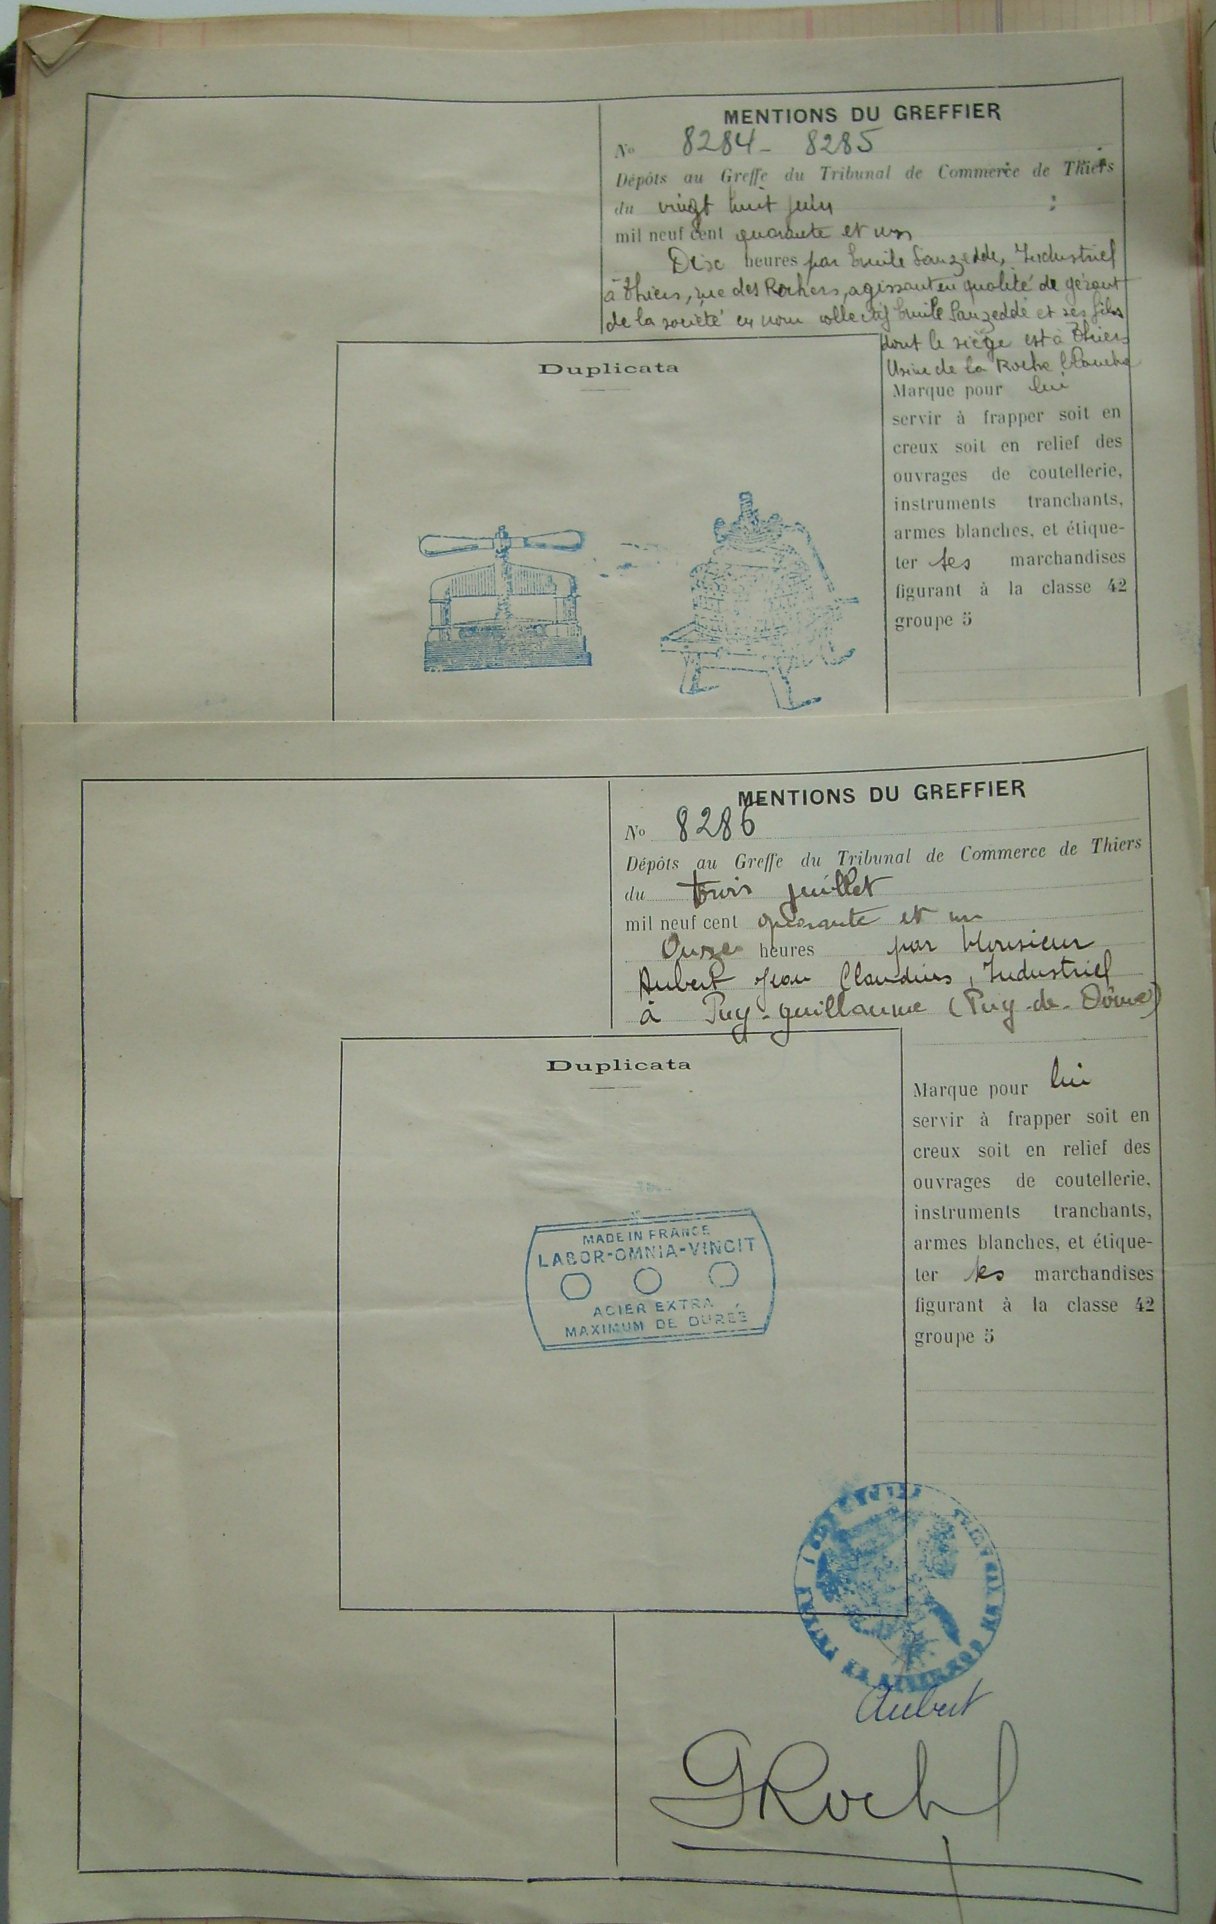 MENTIONS DU GREFFIER
No 8284 - 8285
Dépôts au Greffe du Tribunal de Commerce de Thiers
du vingt huit juin
mil neuf cent quarante et un
Dix heures par Emile Sauzedde, Industriel
à Thiers, rue des Rochers, agissant en qualité de gérant
de la société en nom collectif Emile Sauzedde et ses fils
dont le siège est à Thiers
Usine de la Roche Blanche
Duplicata
Marque pour lui
servir à frapper soit en
creux soit en relief des
ouvrages de coutellerie,
instruments tranchants,
armes blanches, et étique-
ter ses marchandises
figurant à la classe 42
groupe 5
MENTIONS DU GREFFIER
No 8286
Dépôts au Greffe du Tribunal de Commerce de Thiers
du trois juillet
mil neuf cent quarante et un
Onze heures par Monsieur
Aubert Jean Claudius, Industriel
à Puy-Guillaume (Puy-de-Dôme)
Duplicata
Marque pour lui
servir à frapper soit en
creux soit en relief des
ouvrages de coutellerie,
instruments tranchants,
armes blanches, et étique-
ter ses marchandises
figurant à la classe 42
groupe 5
MADE IN FRANCE
LABOR-OMNIA-VINCIT
ACIER EXTRA
MAXIMUM DE DURÉE
Aubert